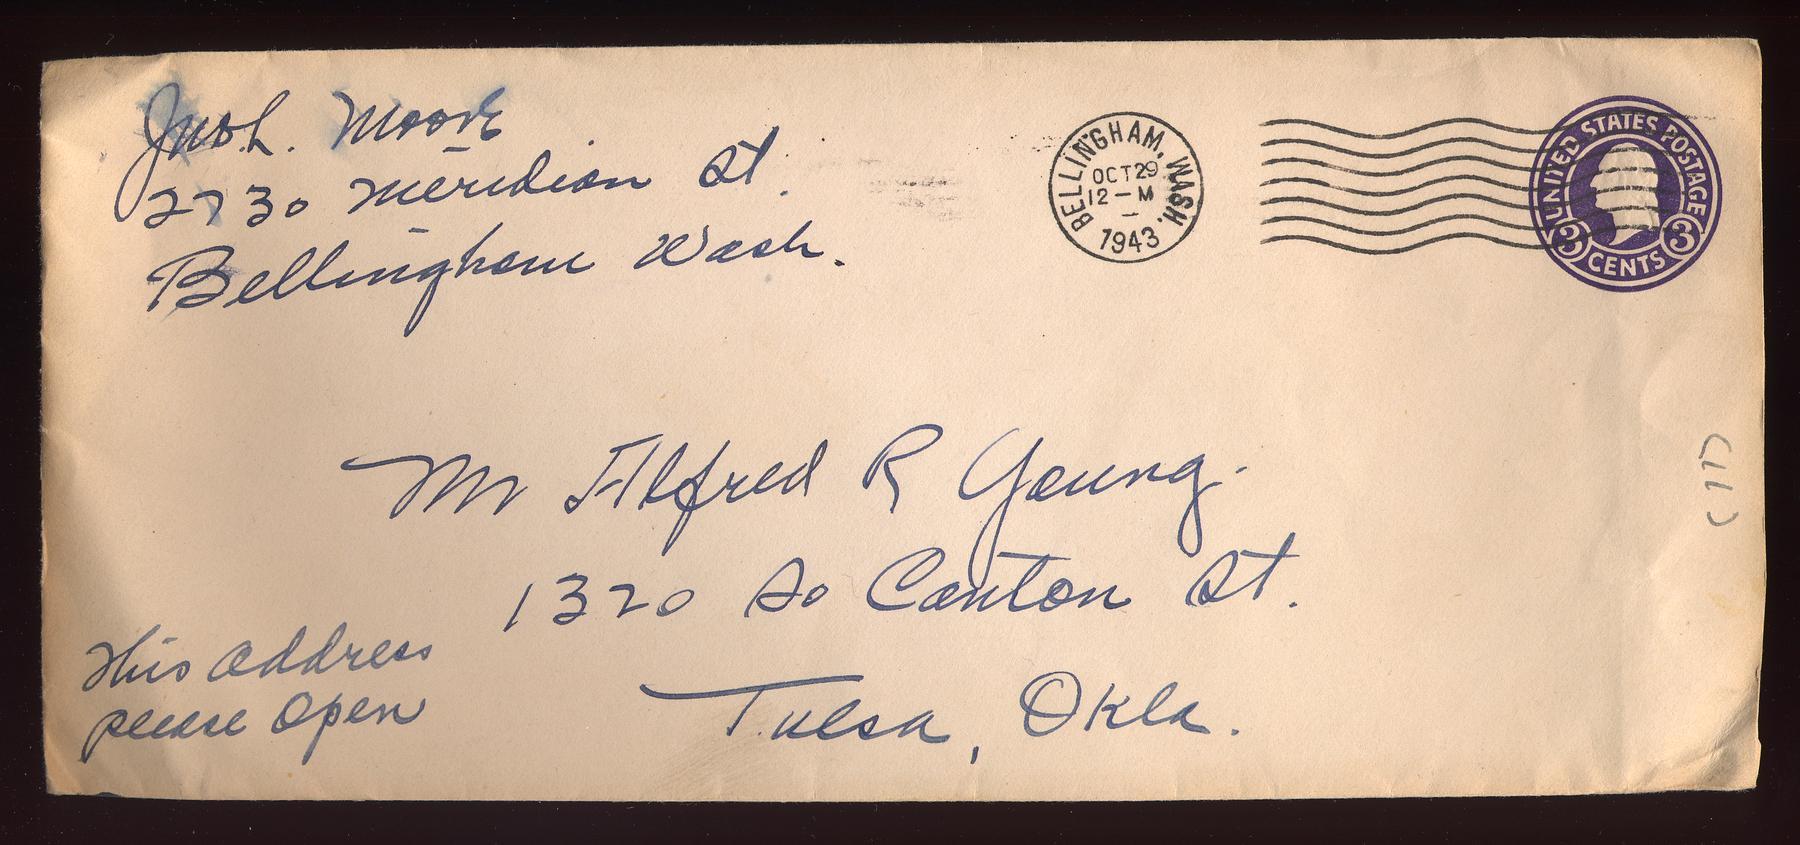 Jno. L. Moore
2730 Meridian St.
Bellingham Wash.
BELLINGHAM, WASH.
OCT 29
12 - M
1943
UNITED STATES POSTAGE
3 CENTS 3
Mr Alfred R Young.
1320 So Canton St.
Tulsa, Okla.
This address
please Open
(17)